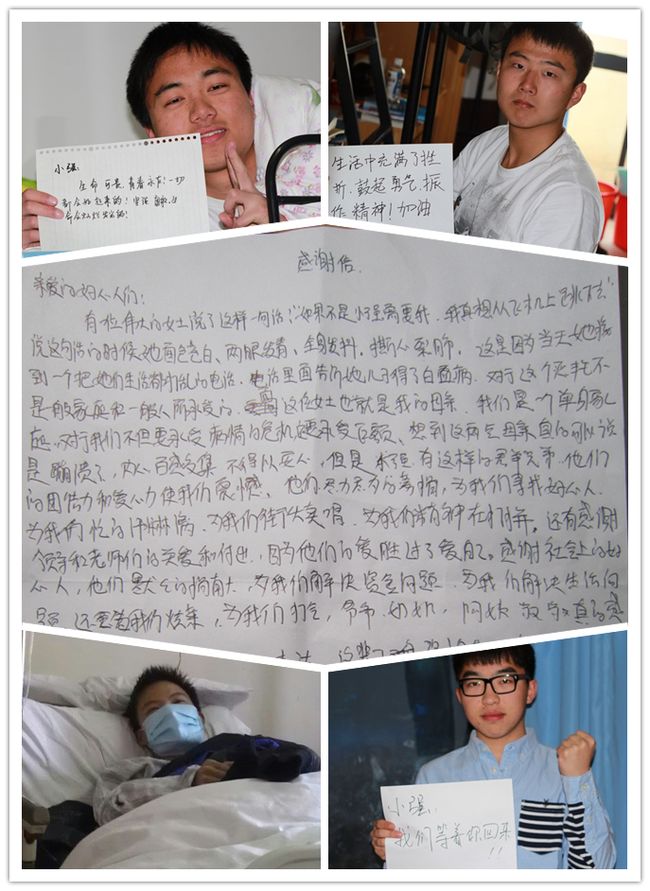 小强:
生命可贵,青春永存!一切
都会好起来的!
生活中充满了挫
折,鼓起勇气,振
作精神!加油
感谢信
亲爱的好心人们:
有位伟大的女士说了这样一句话:"如果不是小星需要我,我真想从飞机上跳下去"
说这句话的时候她面色苍白、两眼发青、全身发抖,撕心裂肺,这是因为当天她接
到一个把她们生活都打乱的电话,电话里面告诉她儿子得了白血病,对于这个死挣不
是一般家庭和一般人所承受的,这位女士也就是我的母亲,我们是一个单身家
庭,对于我们不但要承受病情的危机还要承受巨额、想到这两点母亲真的可以说
是崩溃了,内心百感交集 不得以死人,但是 有这样的 兄弟,他们
的团结力和爱心力使我们震憾,他们尽力尽力的筹捐,为我们寻找好心人
为我们忙的汗淋淋,为我们街头卖唱,为我们。还有感谢
领导和老师们的关爱和付出,因为他们的爱胜过了爱自己。感谢社会上的好
心人,他们默默的捐助,为我们解决资金问题,为我们解决生活问
题,还要给我们,为我们打气,爷爷、奶奶、阿姨、叔叔真的感
小强:
我们等着你回来
!!